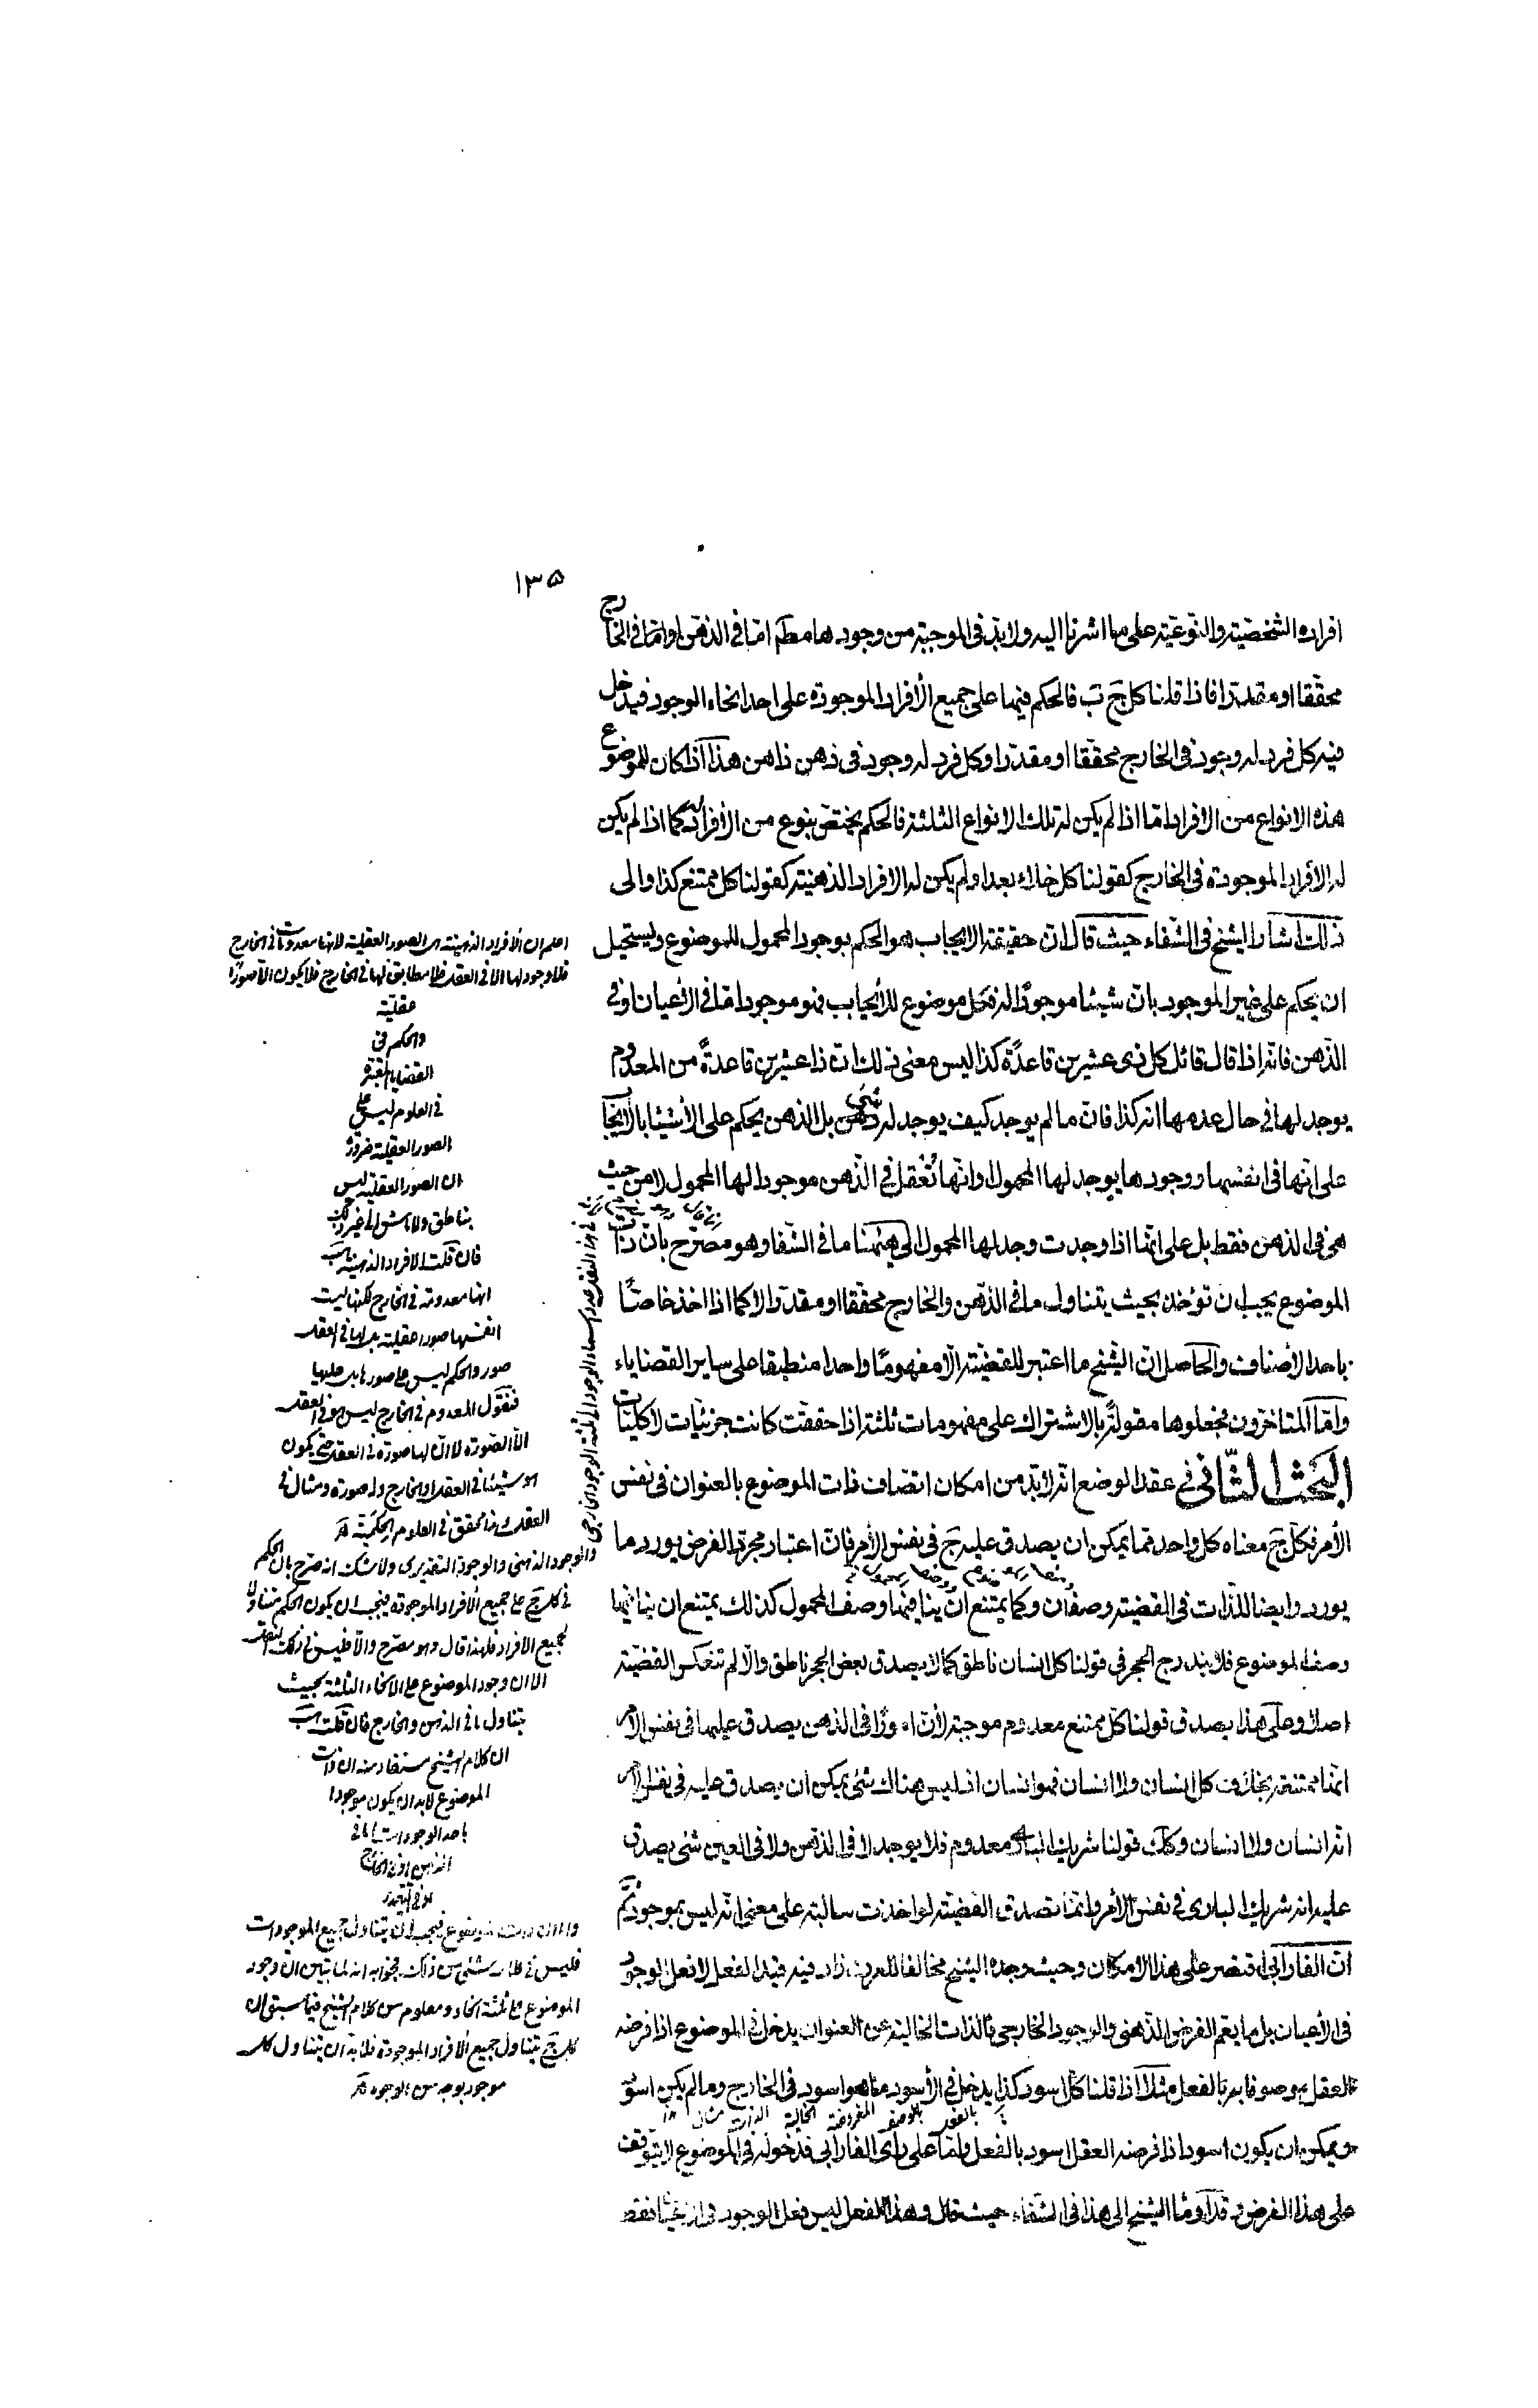 ١٣٥
افراده الشخصية والنوعية على ما اشرنا اليه ولابد فى الموجبة من وجودها مطم اما فى الذهن او اما فى الخارج
محققا او مقدرا فاذا قلنا كل ج ب فالحكم فيها على جميع الأفراد الموجودة على احد انحاء الوجود فيدخل
فيه كل فرد له وجود فى الخارج محققا او مقدرا وكل فرد له وجود فى ذهن ذاهن هذا اذا كان للموضوع
هذه الانواع من الافراد اما اذا لم يكن له تلك الانواع الثلثة فالحكم يختص بنوع من الأفراد كما اذا لم يكن
له الأفراد الموجودة فى الخارج كقولنا كل خلاء بعد او لم يكن له الا فراد الذهنية كقولنا كل ممتنع كذا والى
ذلك اشار الشيخ فى الشفاء حيث قال ان حقيقة الايجاب هو الحكم بوجود المحمول للموضوع ويستحيل
ان يحكم على غير الموجود بان شيئا موجودا له فكل موضوع للأيجاب فهو موجود اما فى الأعيان او فى
الذهن فانه اذا قال قائل كل ذى عشرين قاعدة كذا ليس معنى ذلك ان ذا عشرين قاعدة من المعدوم
يوجد لها فى حال عدمها انه كذا فان ما لم يوجد كيف يوجد له شئ بل الذهن يحكم على الأشيئا بالايجاب
على انها فى انفسها ووجودها يوجد لها المحمول وانها تعقل فى الذهن موجودا لها المحمول لا من حيث
هى فى الذهن فقط بل على انها اذا وجدت وجد لها المحمول الى ههنا ما فى الشفا وهو مصرح بان ذات
الموضوع يجب ان تؤخذ بحيث يتناول ما فى الذهن والخارج محققا او مقدرا الا كما اذا اخذ خاصا
باحد الأصناف والحاصل ان الشيخ ما اعتبر للقضية الا مفهوما واحدا منطبقا على ساير القضاياء
واما المتاخرون فجعلوها مقولة بالاشتراك على مفهومات ثلثة اذا حققت كانت جزئيات لا كليات
البحث الثانى فى عقد الوضع انه لابد من امكان اتصاف ذات الموضوع بالعنوان فى نفس
الأمر فكل ج معناه كل واحد مما يمكن ان يصدق عليه ج فى نفس الأمر فان اعتبار مجرد الفرض يورد ما
يورد وايضا للذات فى القضية وصفان وكما يمتنع ان ينافيها وصف المحمول كذلك يمتنع ان ينافيها
وصف الموضوع فلا يندرج الحجر فى قولنا كل انسان ناطق كما لا يصدق بعض الحجر ناطق والا لم تنعكس القضية
اصلا وعلى هذا يصدق قولنا كل ممتنع معدوم موجبة لأن امورا فى الذهن يصدق عليها فى نفس الامر
انها ممتنعة بخلاف كل انسان ولا انسان فهو انسان اذ ليس هناك شئ يمكن ان يصدق عليه فى نفس الامر
انه انسان ولا انسان وكك قولنا شريك البارى معدوم فلا يوجد لا فى الذهن ولا فى العين شئ يصدق
عليه انه شريك البارى فى نفس الأمر وانما تصدق القضية لو اخذت سالبة على معنى انه ليس بموجود ثم
ان الفارابى اقتصر على هذا الامكان وحيث وجده الشيخ مخالفا للعرف زاد فيه قيد الفعل لا فعل الوجود
فى الأعيان بل ما يعم الفرض الذهنى والوجود الخارجى فالذات الخالية عن العنوان يدخل فى الموضوع اذا فرضه
العقل موصوفا به بالفعل مثلا اذا قلنا كل اسود كذا يدخل فى الأسود ما هو اسود فى الخارج وما لم يكن اسود
ويمكن ان يكون اسود اذا فرضه العقل اسود بالفعل واما على رأى الفارابى فدخوله فى الموضوع لا يتوقف
على هذا الفرض وقد اومأ الشيخ الى هذا فى الشفاء حيث قال وهذا الفعل ليس فعل الوجود فى الاعيان فقط
اعلم ان الأفراد الذهنية هى الصور العقلية لانها معدومات فى الخارج
فلا وجود لها الا فى العقل فلا مطابق لها فى الخارج فلا يكون الا صورا
عقلية
والحكم فى
القضايا المعتبرة
فى العلوم ليس على
الصور العقلية ضرورة
ان الصور العقلية ليس
بناطق ولا ماش الى غير ذلك
فان قلت الافراد الذهنية هب
انها معدومة فى الخارج لكنها ليست
انفسها صورا عقلية بل لها فى العقل
صور والحكم ليس على صورها بل عليها
فنقول المعدوم فى الخارج ليس هو فى العقل
الا الصورة لا ان لها صورة فى العقل حتى يكون
هو شيئا فى العقل او الخارج وله صورة ومثال فى
العقل وهذا محقق فى العلوم الحكمية
والوجود الذهنى والوجود التقديرى ولا شك انه صرح بان الحكم
فى كل ج على جميع الأفراد الموجودة فيجب ان يكون الحكم متناولا
لجميع الافراد فلهذا قال وهو مصرح والا فليس فى ذلك النقل
الا ان وجود الموضوع على الانحاء الثلثة بحيث
يتناول ما فى الذهن والخارج فان قلت هب
ان كلام الشيخ مستفاد منه ان ذات
الموضوع لابد ان يكون موجودا
باحد الوجودات اما فى
الذهن او فى الخارج
او فى التقدير
واما ان ذات الموضوع فيجب ان يتناول جميع الموجودات
فليس فى كلامه شئ من ذلك فجوابه انه لما تبين ان وجود
الموضوع على ثلثة انحاء ومعلوم من كلام الشيخ فيما سبق ان
كل ج يتناول جميع الأفراد الموجودة فلابد ان يتناول كل
موجود بوجه من الوجوه